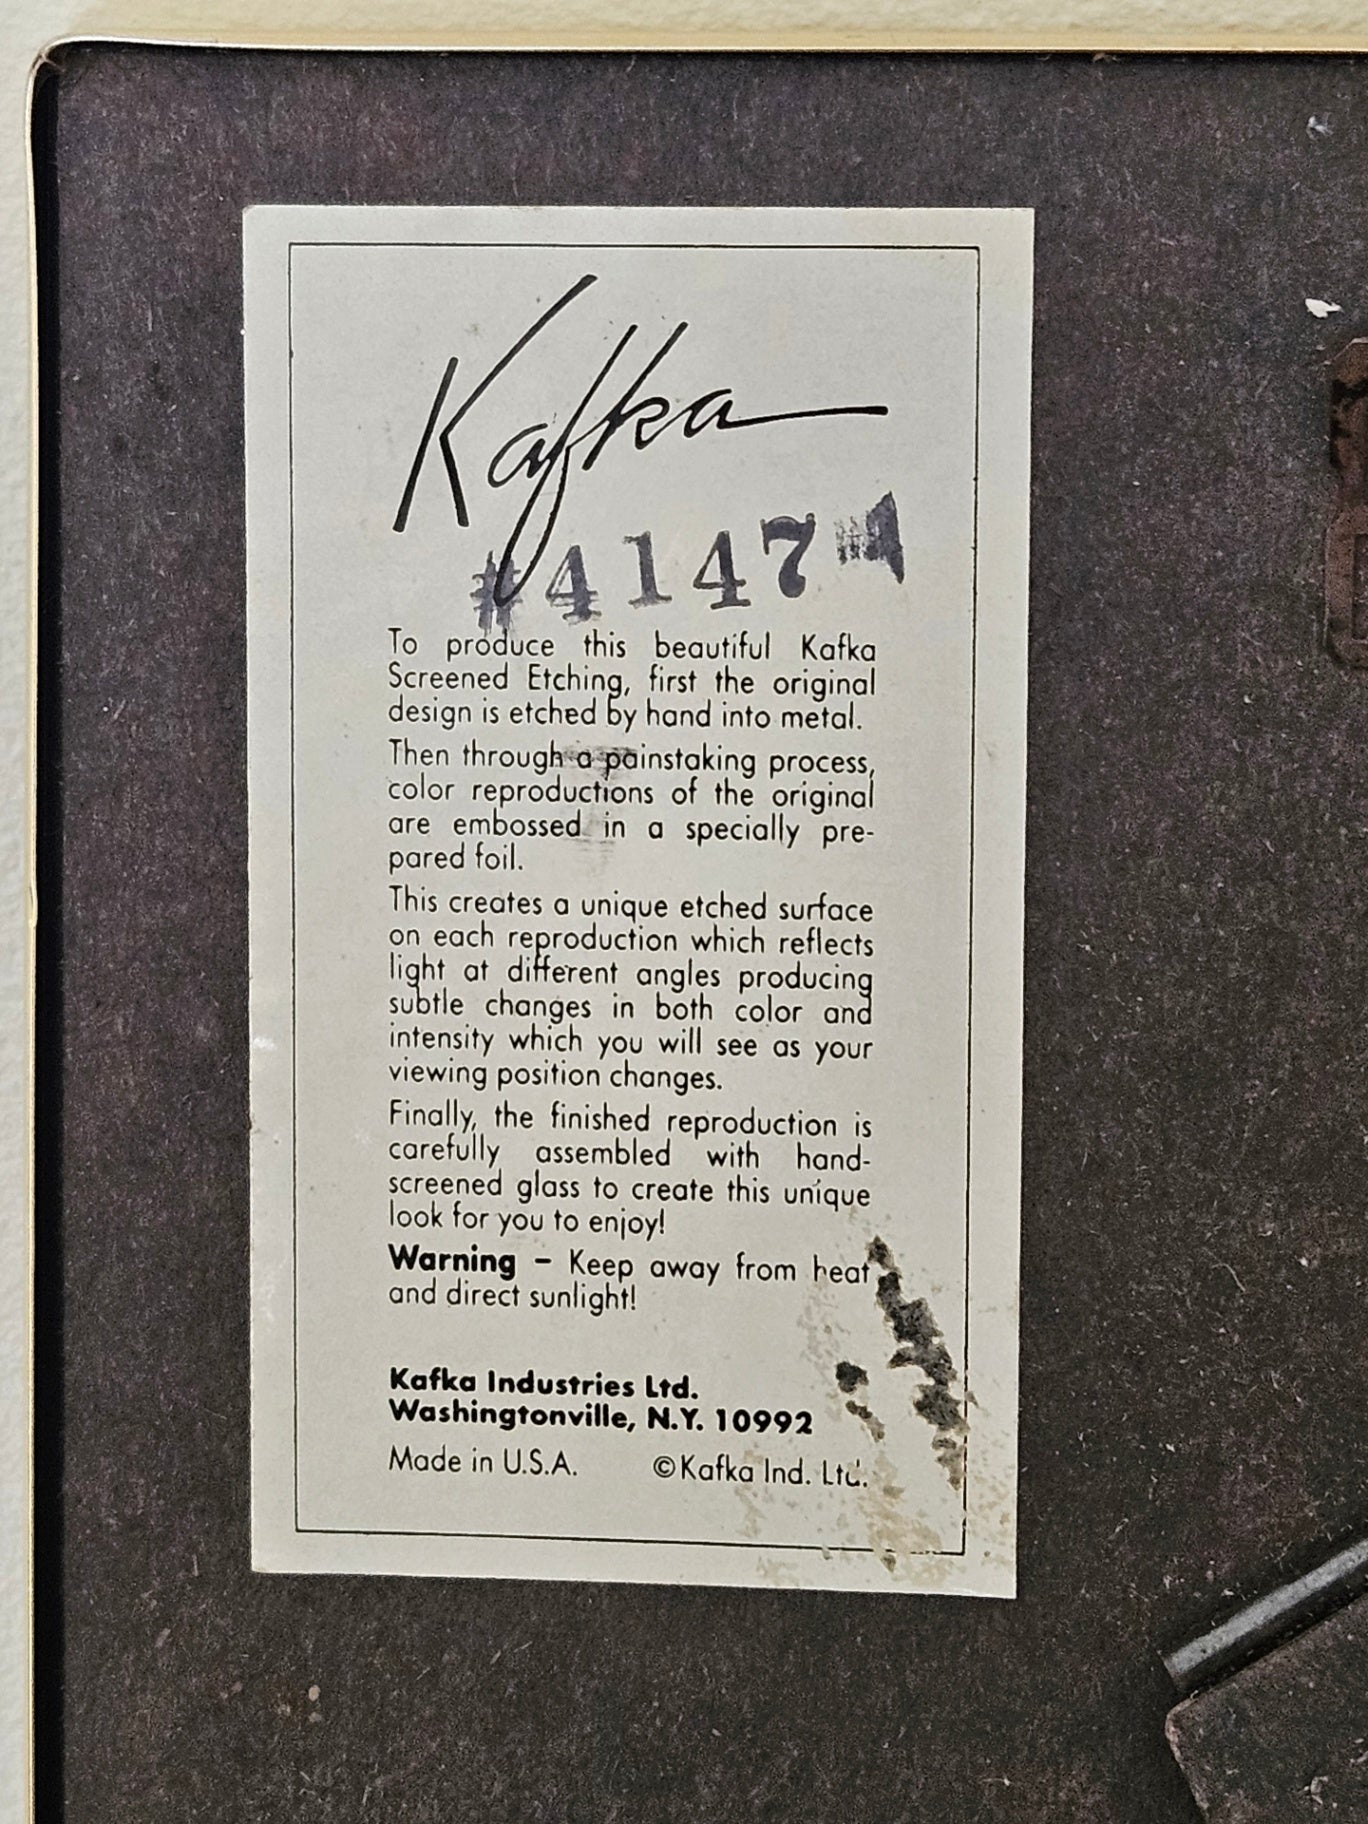 Kafka
#4147
To produce this beautiful Kafka
Screened Etching, first the original
design is etched by hand into metal.
Then through a painstaking process,
color reproductions of the original
are embossed in a specially pre-
pared foil.
This creates a unique etched surface
on each reproduction which reflects
light at different angles producing
subtle changes in both color and
intensity which you will see as your
viewing position changes.
Finally, the finished reproduction is
carefully assembled with hand-
screened glass to create this unique
look for you to enjoy!
Warning – Keep away from heat
and direct sunlight!
Kafka Industries Ltd.
Washingtonville, N.Y. 10992
Made in U.S.A. ©Kafka Ind. Ltd.